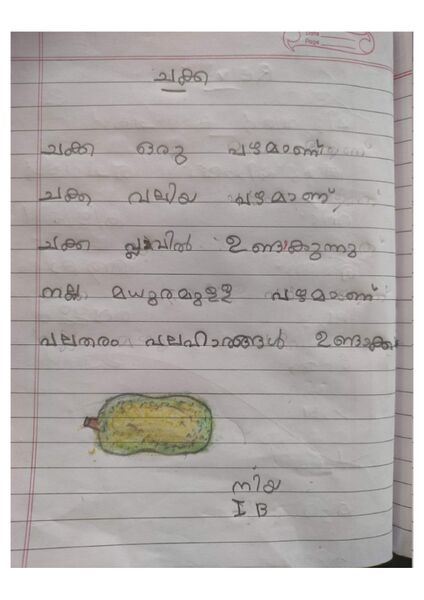 Date
Page
ചക്ക
ചക്ക ഒരു പഴമാണ്
ചക്ക വലിയ പഴമാണ്
ചക്ക പ്ലാവിൽ ഉണ്ടാകുന്നു
നല്ല മധുരമുള്ള പഴമാണ്
പലതരം പലഹാരങ്ങൾ ഉണ്ടാക്കാ
നിയ
I B